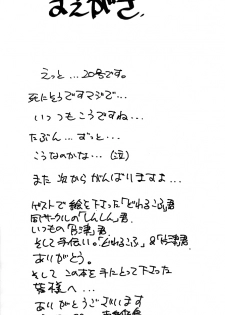 まえがき.
えっと…20号です。
死にそうですマジで…
いつもこうですね…
たぶん…ずっと…
こうなのかな…(泣)
また次からがんばりますよ…
ゲストで絵を下さった「どわるこふ」君
同サークルの「しんしん」君
いつもの「　津」君
そして手伝い。「どわるこふ」&「　津」君
ありがとう。
そしてこの本を手にとって下さった
皆様へ…
ありがとうございます